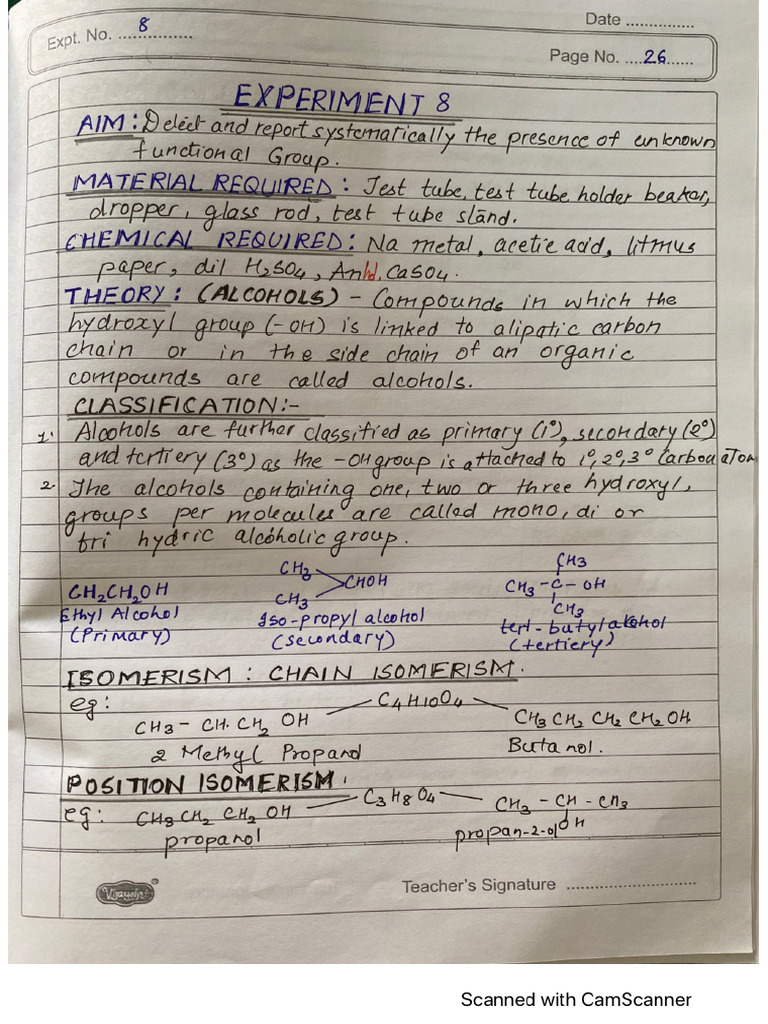 Date ...............
Expt. No. ....8............
Page No. ....26......
EXPERIMENT 8
AIM: Detect and report systematically the presence of unknown
functional Group.
MATERIAL REQUIRED: Test tube, test tube holder beaker,
dropper, glass rod, test tube stand.
CHEMICAL REQUIRED: Na metal, acetic acid, litmus
paper, dil H2SO4, Anhd. CaSO4.
THEORY: (ALCOHOLS) - Compounds in which the
hydroxyl group (-OH) is linked to alipatic carbon
chain or in the side chain of an organic
compounds are called alcohols.
CLASSIFICATION:-
1. Alcohols are further classified as primary (1°), secondary (2°)
and tertiery (3°) as the -OH group is attached to 1°, 2°, 3° Carbon atom
2. The alcohols containing one, two or three hydroxyl,
groups per molecules are called mono, di or
tri hydric alcoholic group.
CH3
CH3 CHOH CH3 - C - OH
CH2CH2OH CH3 CH3
Ethyl Alcohol Iso-propyl alcohol tert-butyl alcohol
(Primary) (secondary) (tertiery)
ISOMERISM: CHAIN ISOMERISM.
eg: C4H10O4
CH3 - CH. CH2 OH CH3 CH2 CH2 CH2 OH
2 Methyl Propanol Butanol.
POSITION ISOMERISM.
eg: CH3 CH2 CH2 OH C3H8O4 CH3 - CH - CH3
OH
propanol propan-2-ol
Vijayshri
Teacher's Signature ..........................
Scanned with CamScanner